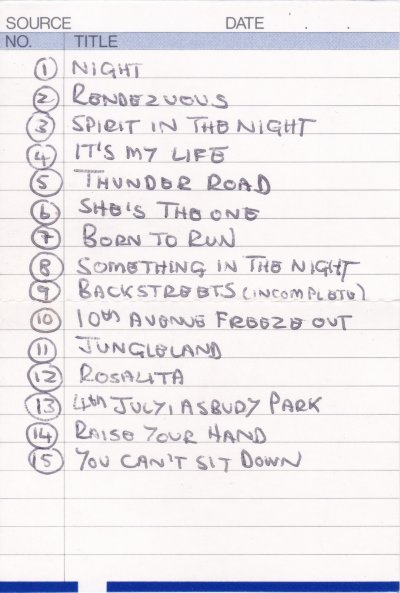 SOURCE DATE . .
NO. TITLE
1 NIGHT
2 RENDEZVOUS
3 SPIRIT IN THE NIGHT
4 IT'S MY LIFE
5 THUNDER ROAD
6 SHE'S THE ONE
7 BORN TO RUN
8 SOMETHING IN THE NIGHT
9 BACKSTREETS (INCOMPLETE)
10 10th AVENUE FREEZE OUT
11 JUNGLELAND
12 ROSALITA
13 4th JULY, ASBUDY PARK
14 RAISE YOUR HAND
15 YOU CAN'T SIT DOWN